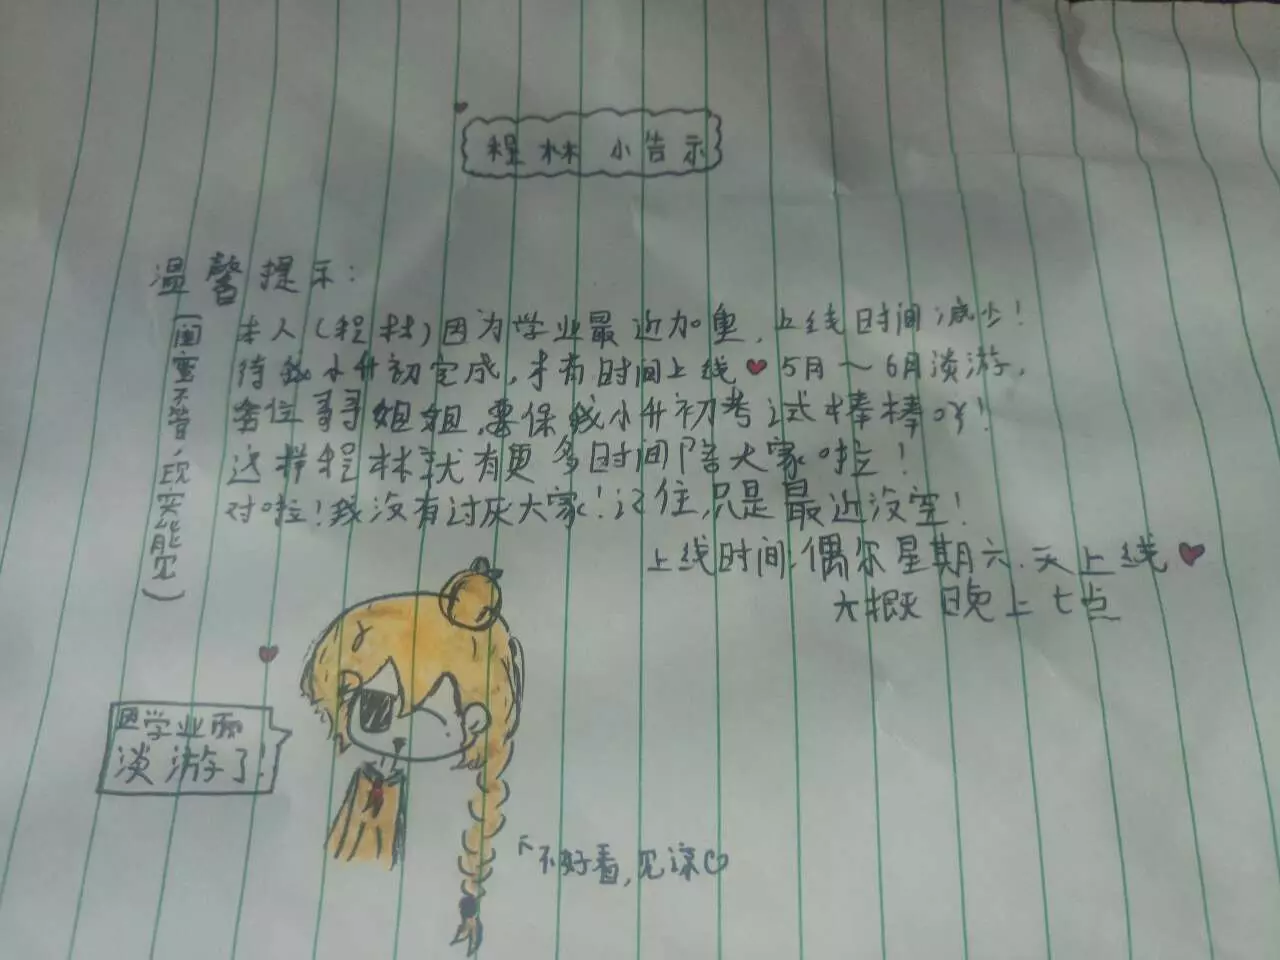 程林 小告示
温馨提示：
(闺蜜不管，现实能见)
本人(程林)因为学业最近加重，上线时间减少！
待我小升初完成，才有时间上线❤5月～6月淡游，
各位哥哥姐姐，要保我小升初考试棒棒吖！
这样程林就有更多时间陪大家啦！
对啦！我没有讨厌大家！记住，只是最近没空！
上线时间：偶尔星期六.天上线❤
大概晚上七点
因学业而
淡游了！
不好看，见谅